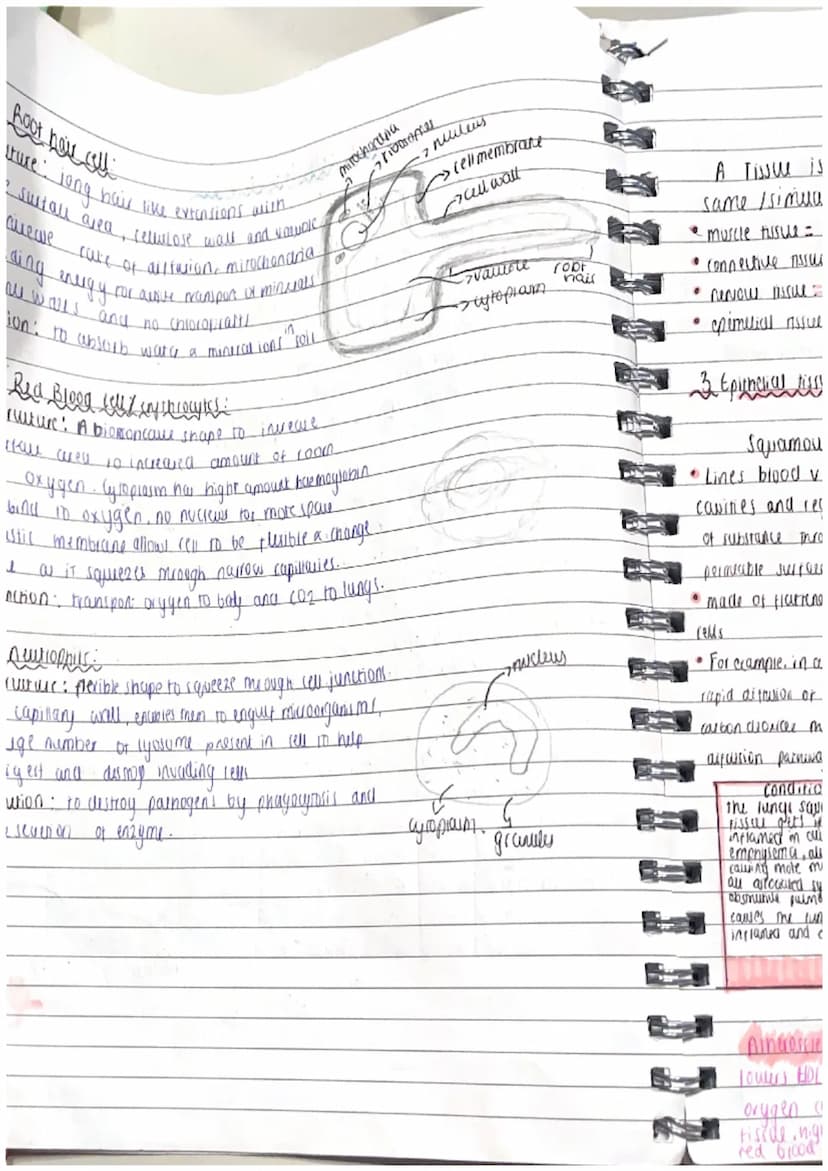 Root hair cell:
ture: long hair like extensions with
surface area, cellulose wall and vacuole
rate of diffusion, mitochondria
ding energy for active transport of minerals
walls and no chloroplasts
ion: to absorb water & mineral ions in soil
mitochondria
ribosomes
nucleus
cell membrane
cell wall
vacuole
root hair
cytoplasm
Red Blood cell/erythrocytes:
ructure: A biconcave shape to increase
area so increased amount of room
oxygen. Cytoplasm has hight amount haemoglobin
bind to oxygen, no nucleus for more space
stic membrane allows cell to be flexible & change
e as it squeezes through narrow capillaries.
nction: transport oxygen to body and CO2 to lungs.
Neutrophils:
ructure: flexible shape to squeeze through cell junctions.
capillary wall, enables them to engulf microorganisms,
rge number of lysosome present in cell to help
igest and destroy invading cells
ction: to destroy pathogens by phagocytosis and
secretion of enzyme.
nucleus
cytoplasm.
granules
A Tissue is
same / simila
• muscle tissue =
• connective tissue
• nervous tissue =
• epithelial tissue
3 Epithelial tiss
Squamou
• Lines blood v
cavities and
of substance thro
permeable surfac
• made of flattene
cells
• For example, in a
rapid diffusion of
carbon dioxide
diffusion pathwa
conditio
the lungs squ
tissue gets
inflamed in
emphysema, al
causing more m
all associated sy
obstructive pulm
causes the lun
inflamed and
lowers HDL
oxygen
tissue. hig
red blood